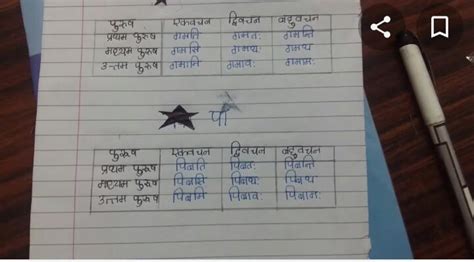 पुरुष एकवचन द्विवचन बहुवचन
प्रथम पुरुष गमति गमतः गमन्ति
मध्यम पुरुष गमसि गमथः गमथ
उत्तम पुरुष गमामि गमावः गमामः
पा
पुरुष एकवचन द्विवचन बहुवचन
प्रथम पुरुष पिबति पिबतः पिबन्ति
मध्यम पुरुष पिबसि पिबथः पिबथ
उत्तम पुरुष पिबामि पिबावः पिबामः